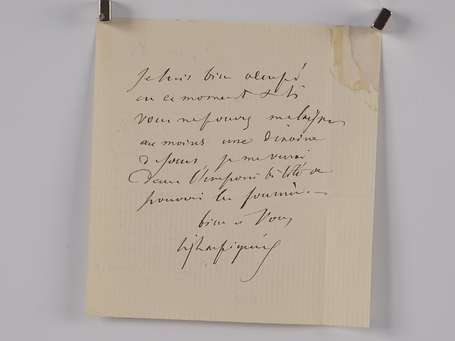 Je suis bien occupé
en ce moment & si
vous ne pouvez me laisser
au moins une dizaine
de jours je me verrai
dans l'impossibilité de
pouvoir les fournir. —
bien à Vous